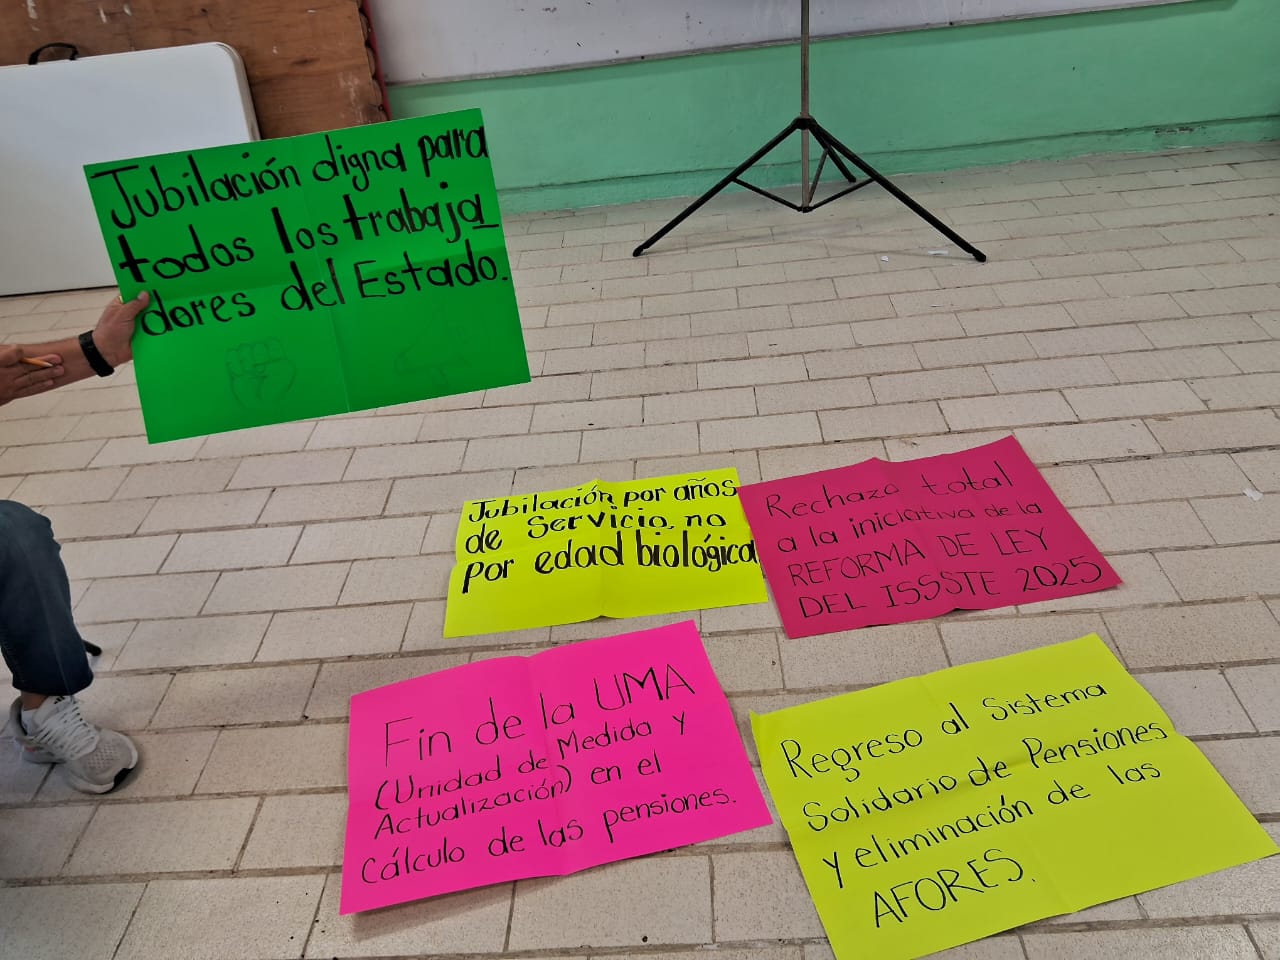 Jubilación digna para
todos los trabaja
dores del Estado.
Jubilación por años
de servicio, no
por edad biológica
Rechazo total
a la iniciativa de la
REFORMA DE LEY
DEL ISSSTE 2025
Fin de la UMA
(Unidad de Medida y
Actualización) en el
cálculo de las pensiones.
Regreso al Sistema
Solidario de Pensiones
y eliminación de las
AFORES.